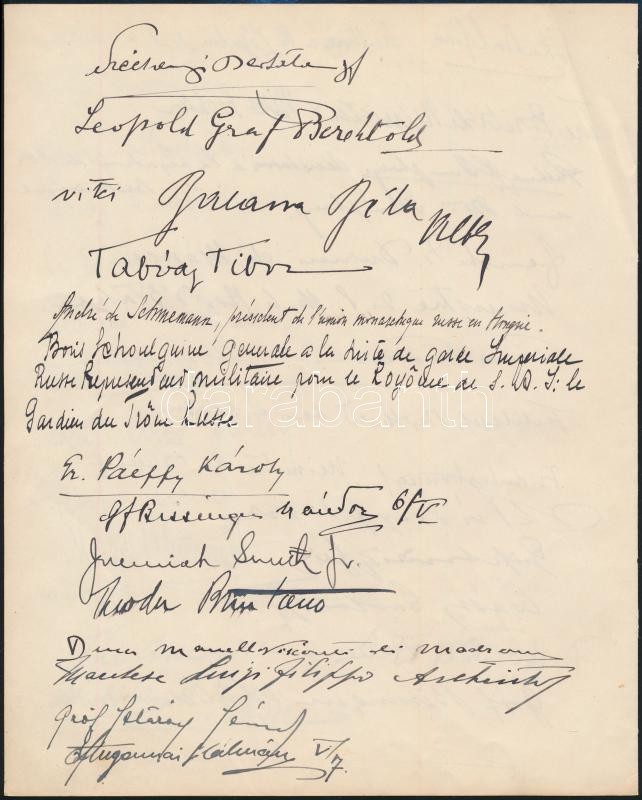 Széchenyi Bertalan gf
Leopold Graf Berchtold
vitéz Balassa Béla
Tabódy Tibor
André de Schmemann, président de l'union monarchique russe en Hongrie.
Boris Schoulguine Generale a la suite de garde Imperiale
Russe Represent militaire pour le Royôme de S. A. I: le
Gardien du Trône Russe
darabanth
Gr. Pálffy Károly
gf Bissingen Nándor 6/VI
Jeremiah Smith Jr.
Theodor Brentano
di
Marchese Luigi Filippo
Gróf Sztáray
Kálmán V/7.